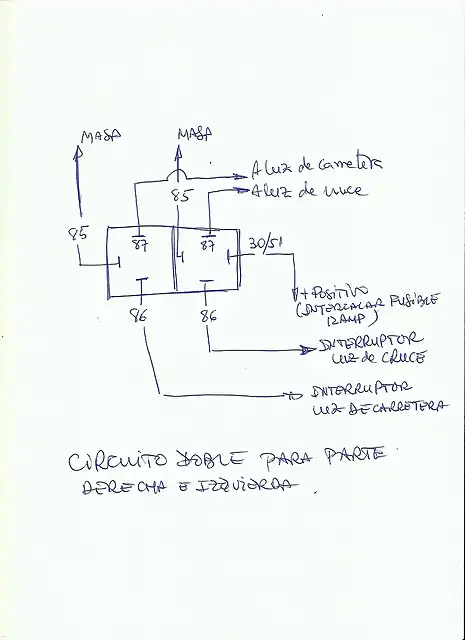 MASA
MASA
A luz de carretera
A luz de cruce
85
85
87
87
30/51
+ POSITIVO
(INTERCALAR FUSIBLE
12 AMP)
86
86
INTERRUPTOR
LUZ de CRUCE
INTERRUPTOR
LUZ DE CARRETERA
CIRCUITO DOBLE PARA PARTE
DERECHA E IZQUIERDA.